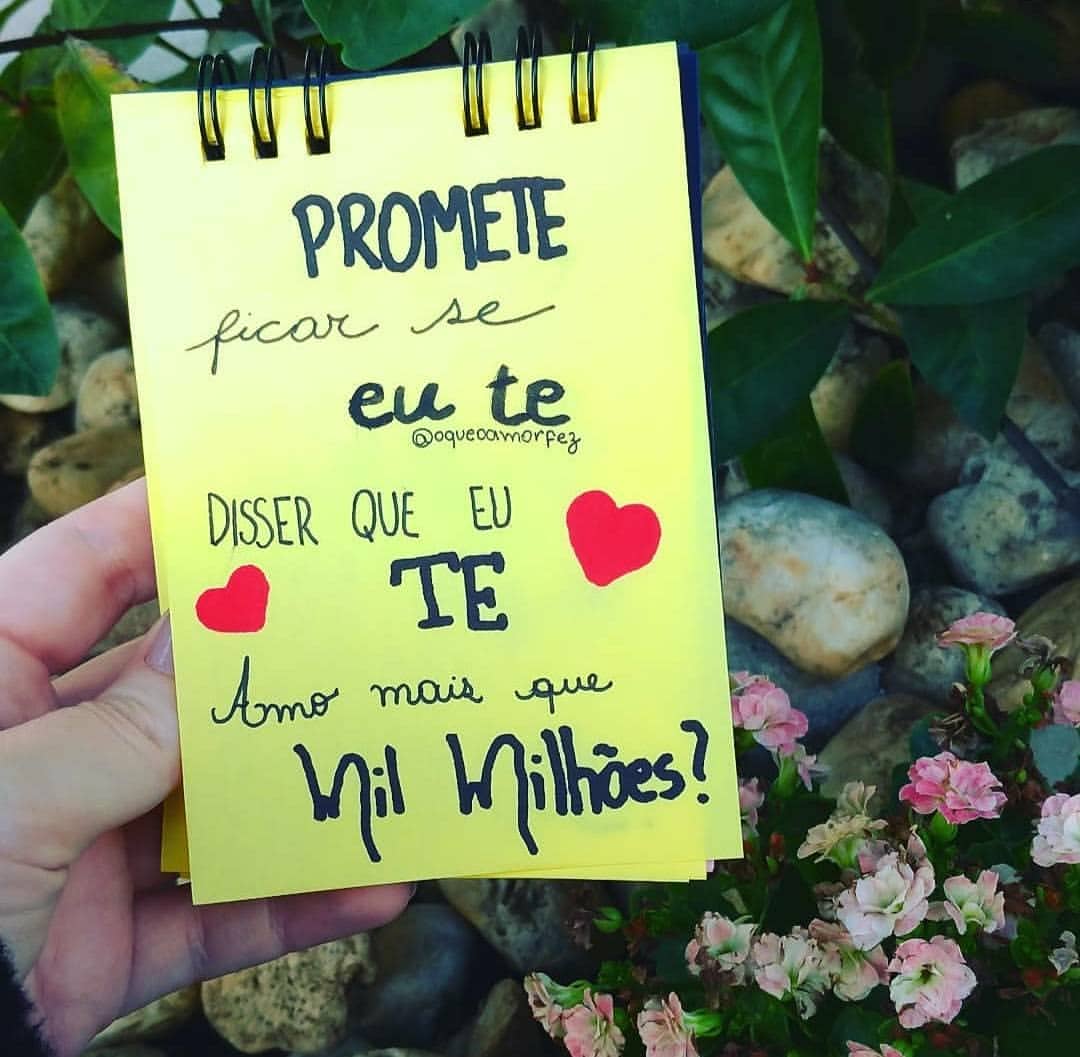 PROMETE
ficar se
eu te
@oqueoamorfez
DISSER QUE EU
TE
Amo mais que
Mil Milhões?